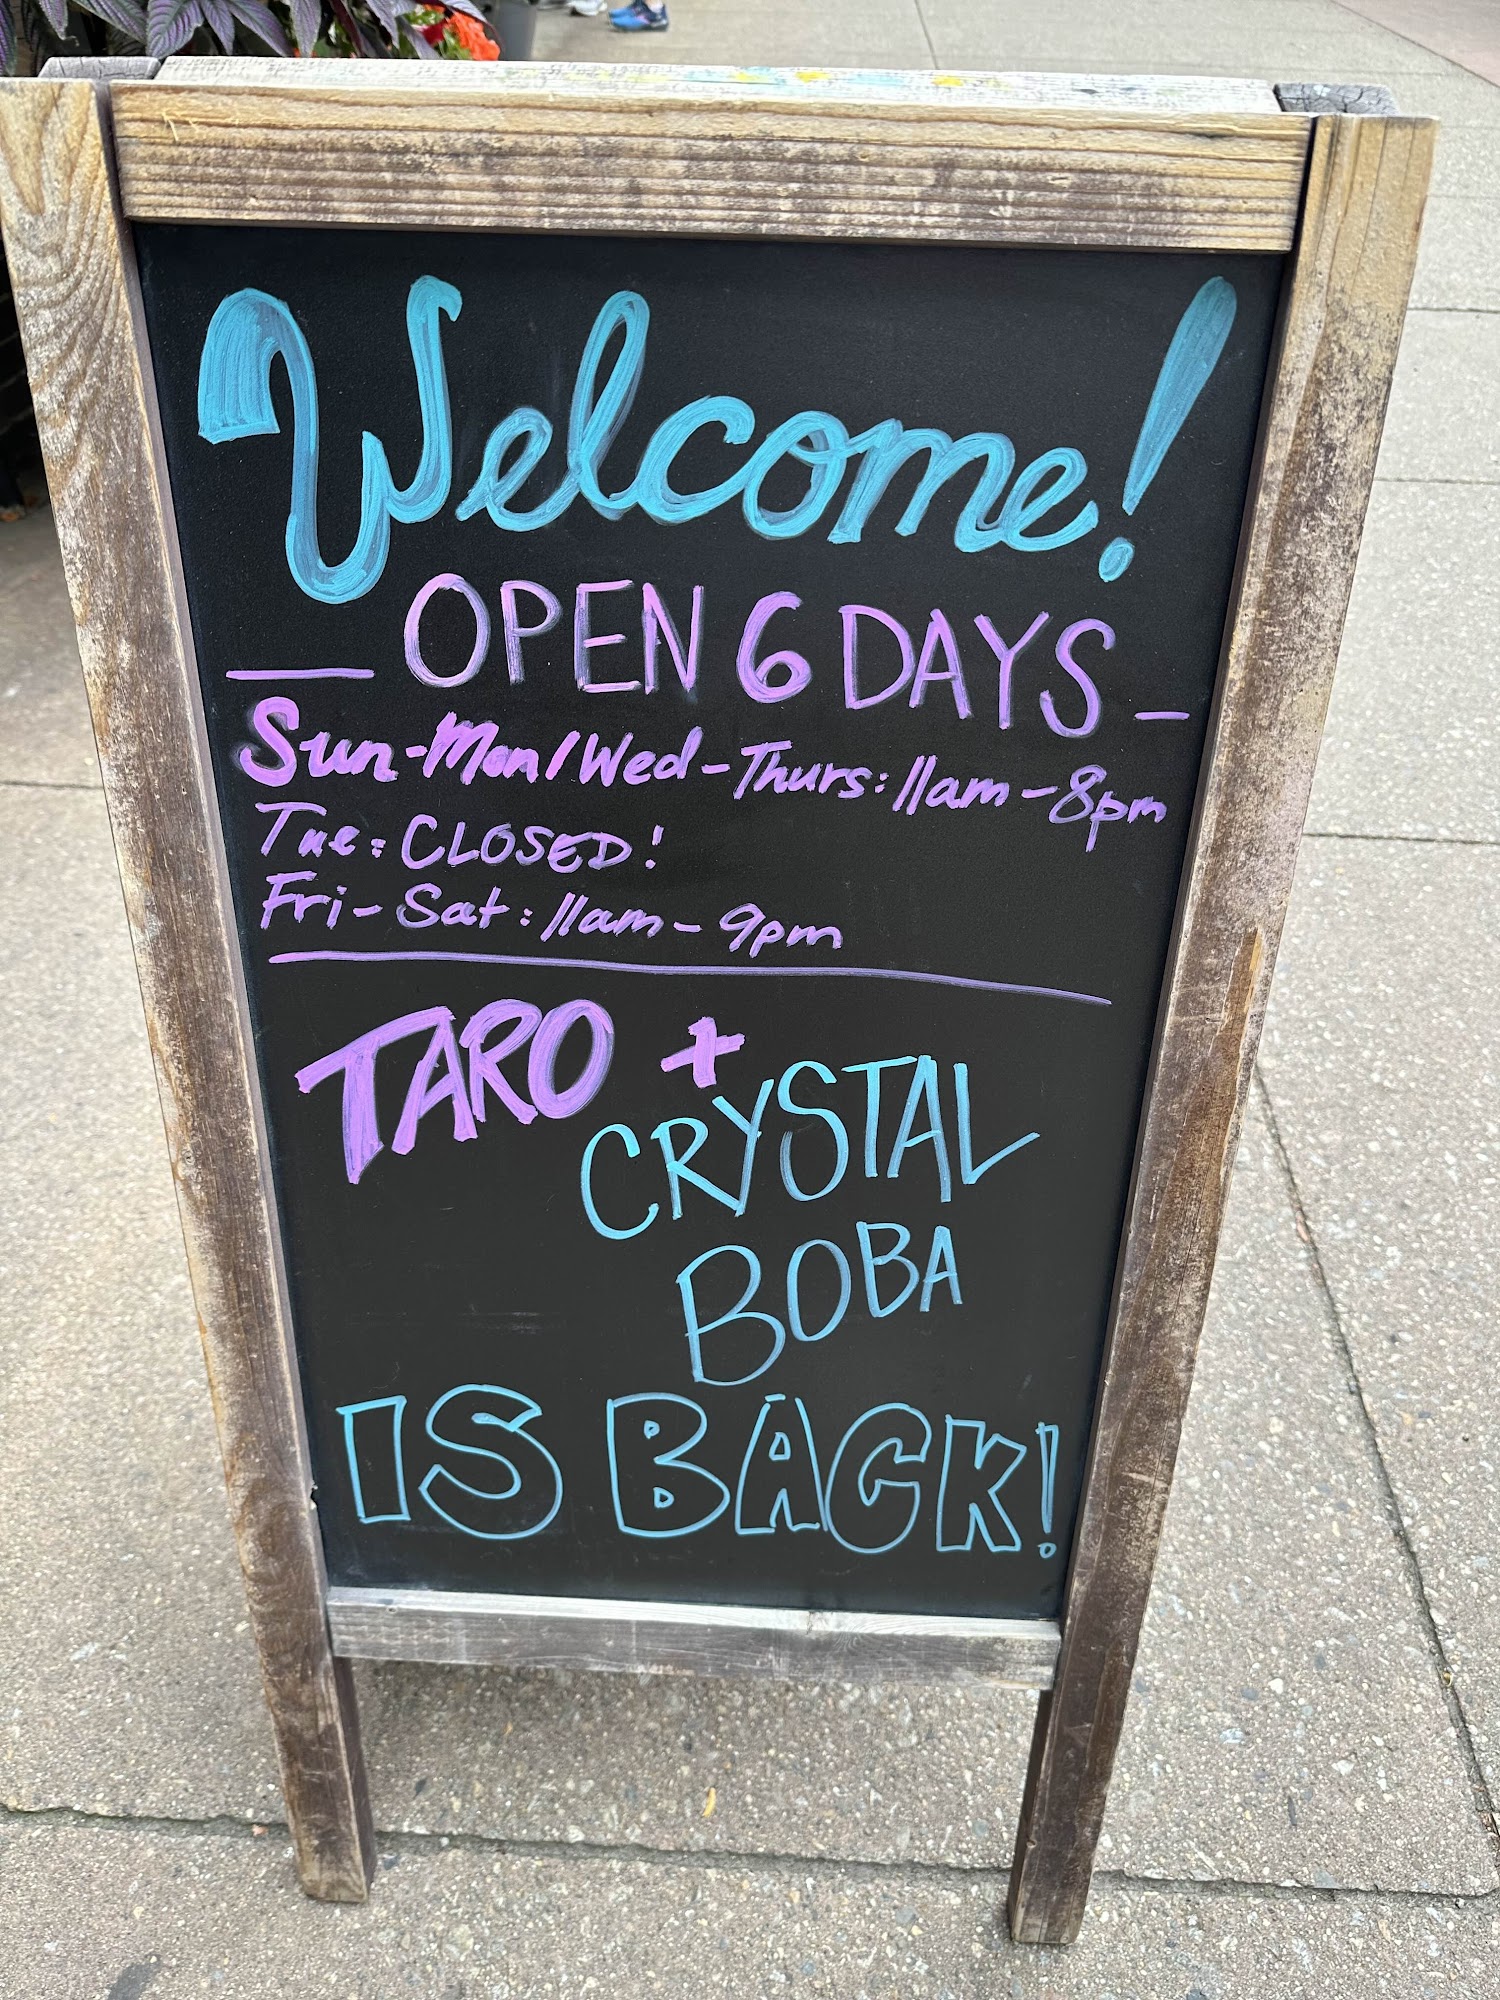 Welcome!
— OPEN 6 DAYS —
Sun-Mon/Wed-Thurs: 11am-8pm
Tue: CLOSED!
Fri-Sat: 11am-9pm
TARO +
CRYSTAL
BOBA
IS BACK!